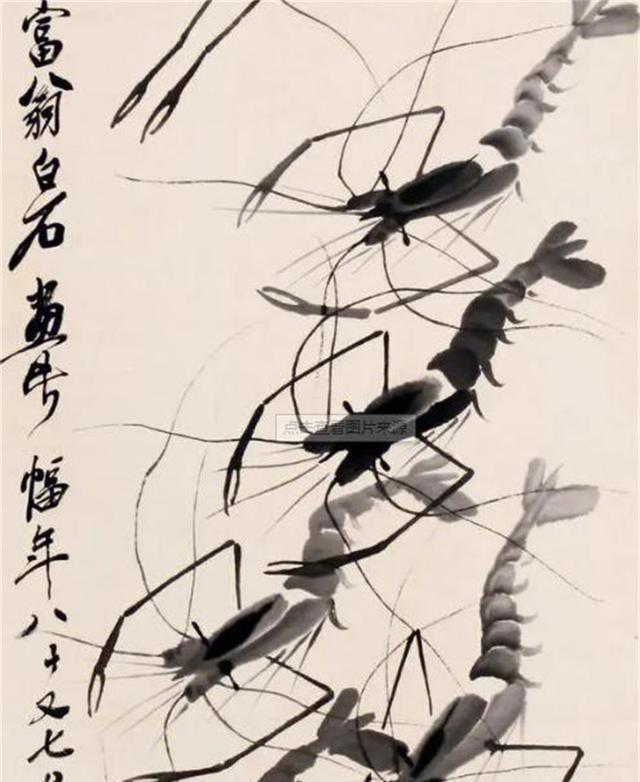 富翁白石畫幅年八十又七
点击查看图片来源